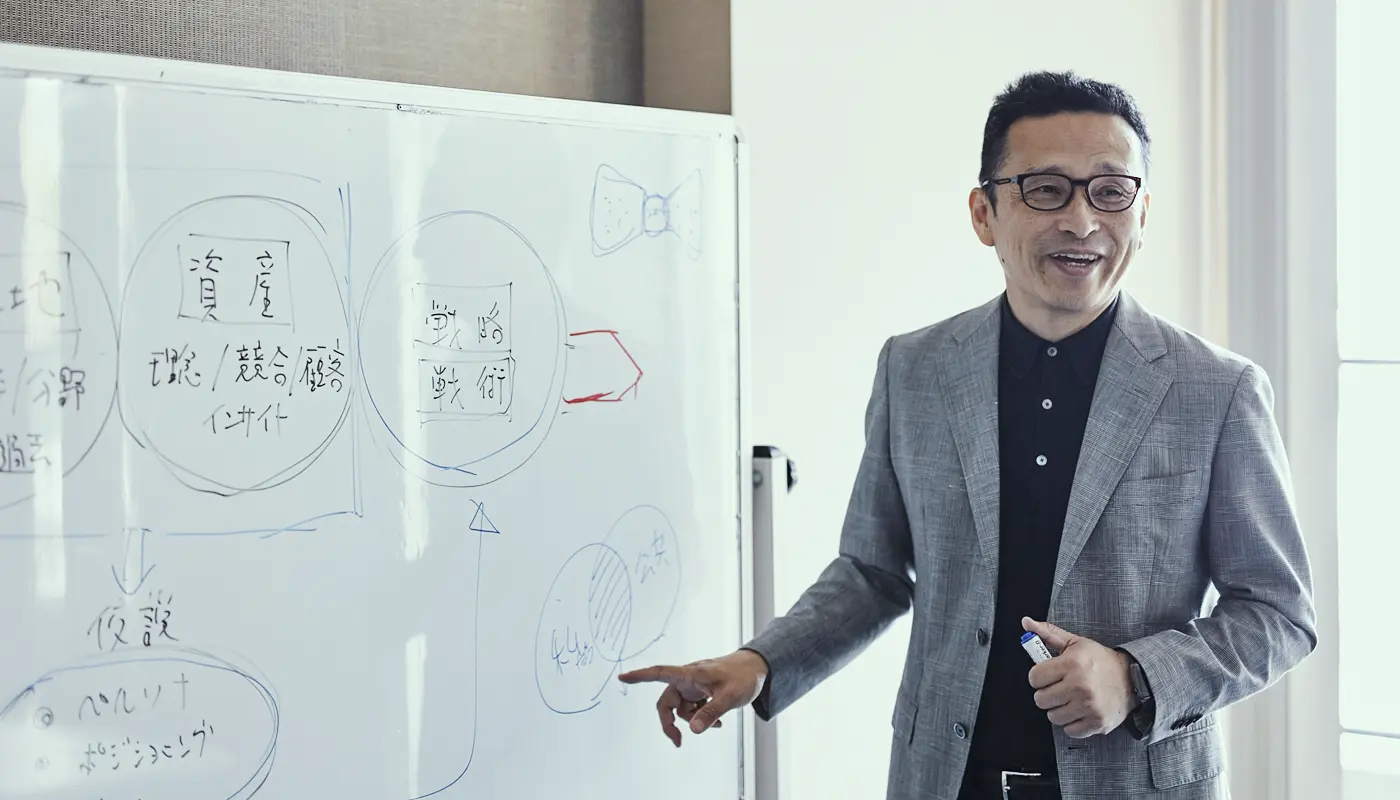 土地
/分野
過去
資産
理念/競合/顧客
インサイト
戦略
戦術
仮説
ペルソナ
ポジショニング
公共